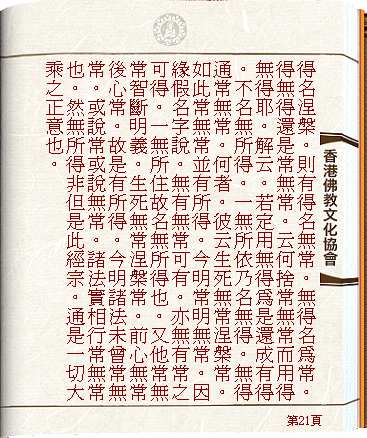 得名涅槃。則有得名無常。無得名爲常。
得無得還是常無常。云何捨常無常而用得
無得耶。解云。若定用無得爲是還成有得
。不名無所得。一無所依乃名無得。無得
通常無常。何者。彼云生死無常涅槃常。
如此常無常並有所得。今明常明無常。因
緣假名字說。無有無常可有。亦無有常之
可得。一無所住故名無所得也。又他常無
常智斷明義。生死無常涅槃常。前心無常
後心常。故是有所得。今明諸法未曾常無
常。或說常或說無常。諸法實相行常無常
也。然無所得非但是此經宗。通是一切大
乘之正意也。
香港佛教文化協會
第21頁